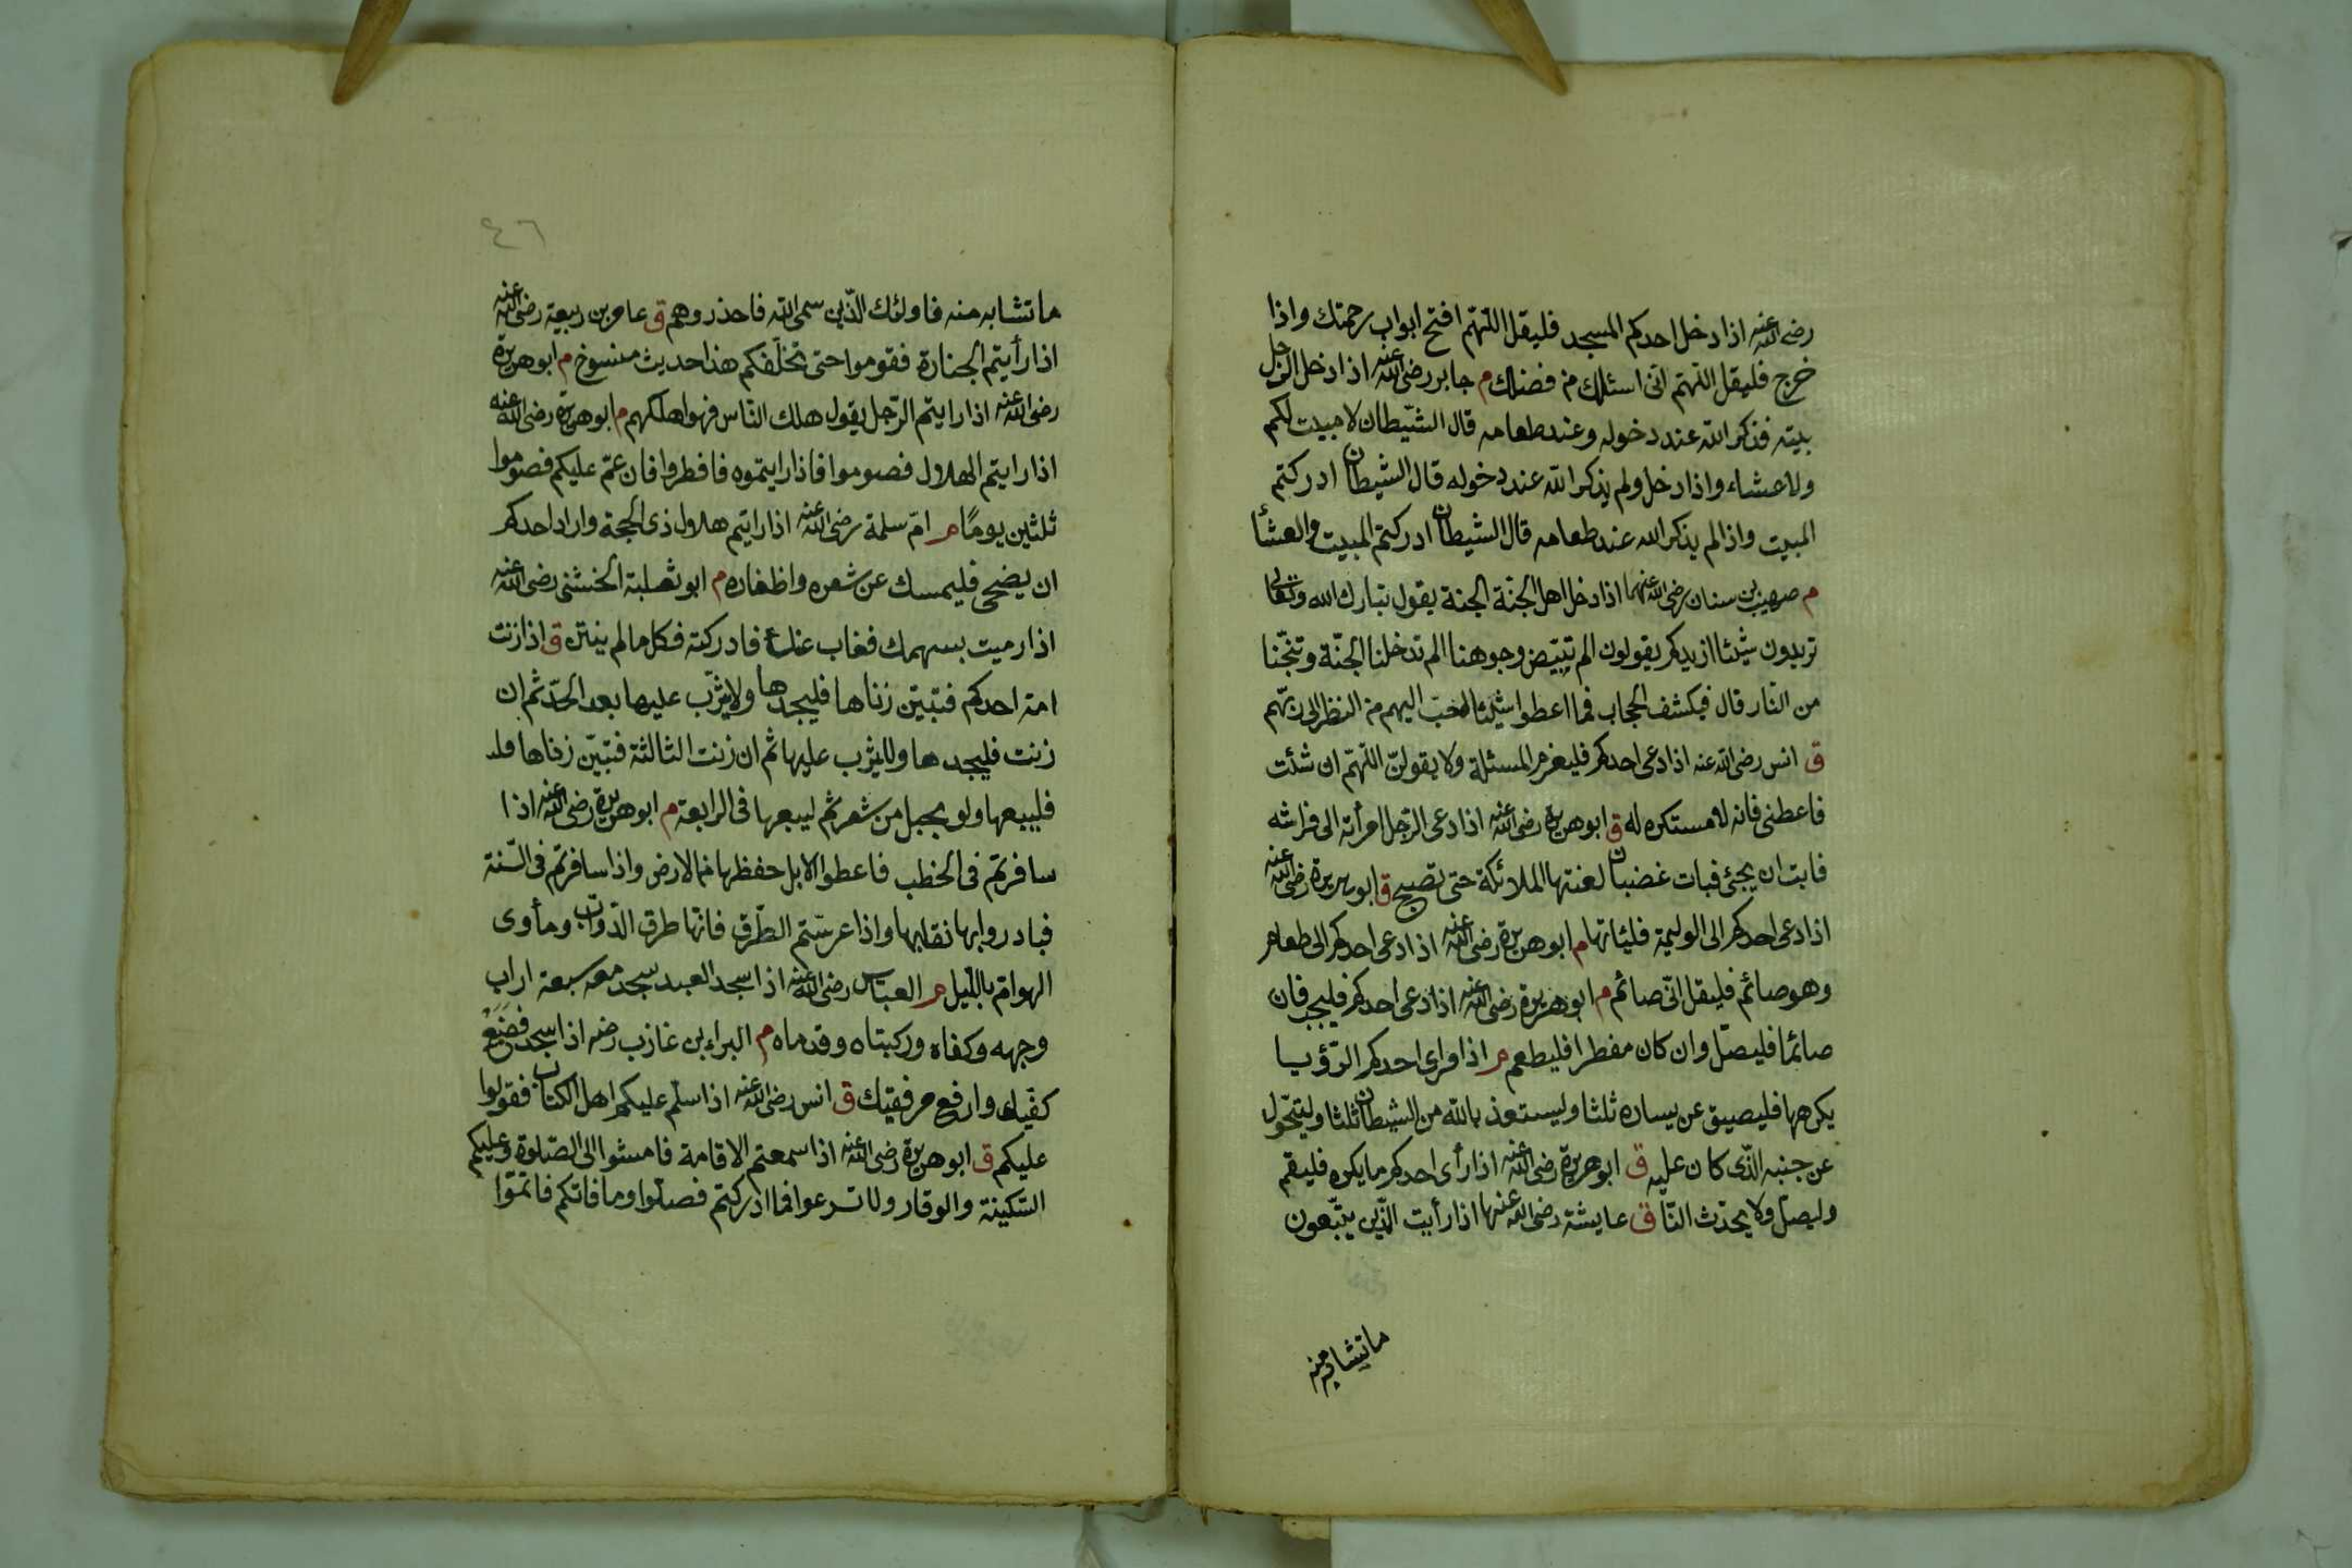 رضى الله عنه اذا دخل احدكم المسجد فليقل اللهم افتح ابواب رحمتك واذا
خرج فليقل اللهم انى اسئلك من فضلك م جابر رضى الله عنه اذا دخل الرجل
بيته فذكر الله عند دخوله وعند طعامه قال الشيطان لا مبيت لكم
ولا عشاء واذا دخل ولم يذكر الله عند دخوله قال الشيطان ادركتم
المبيت واذا لم يذكر الله عند طعامه قال الشيطان ادركتم المبيت والعشأ
م صهيب بن سنان رضى الله عنهما اذا دخل اهل الجنة الجنة يقول تبارك الله وتعالى
تريدون شيئا ازيدكم يقولون الم تبيض وجوهنا الم تدخلنا الجنة وتنجنا
من النار قال فيكشف الحجاب فما اعطوا شيئا احب اليهم من النظر الى ربهم
ق انس رضى الله عنه اذا دعى احدكم فليعزم المسئلة ولا يقولن اللهم ان شئت
فاعطنى فانه لا مستكره له ق ابوهريرة رضى الله عنه اذا دعى الرجل امرأته الى فراشه
فابت ان يجئ فبات غضبان لعنتها الملائكة حتى تصبح ق ابوهريرة رضى الله عنه
اذا دعى احدكم الى الوليمة فليئاتها م ابوهريرة رضى الله عنه اذا دعى احدكم الى طعام
وهو صائم فليقل انى صائم م ابوهريرة رضى الله عنه اذا دعى احدكم فليجب فان
صائما فليصل وان كان مفطرا فليطعم م اذا ورأى احدكم الرؤيا
يكرهها فليصيق عن يساره ثلثا وليستعذ بالله من الشيطان ثلثا وليتحول
عن جنبه الذى كان عليه ق ابوهريرة رضى الله عنه اذا رأى احدكم ما يكره فليقم
وليصل ولا يحدث النا ق عايشة رضى الله عنها اذا رأيت الذين يتبعون
ما تشابه منه
٤٦
ما تشابه منه فاولئك الذين سمى الله فاحذروهم ق عامر بن ربيعة رضى الله عنه
اذا رأيتم الجنازة فقوموا حتى تخلفكم هذا حديث منسوخ م ابوهريرة
رضى الله عنه اذا رايتم الرجل يقول هلك الناس فهو اهلكهم م ابوهريرة رضى الله عنه
اذا رايتم الهلال فصوموا فاذا رايتموه فافطروا فان غم عليكم فصوموا
ثلثين يوما م ام سلمة رضى الله عنه اذا رايتم هلال ذى الحجة واراد احدكم
ان يضحى فليمسك عن شعره واظفاره م ابو ثعلبة الخشنى رضى الله عنه
اذا رميت بسهمك فغاب عنك فادركته فكل ما لم ينتن ق اذا زنت
امة احدكم فتبين زناها فليجدها ولا يثرب عليها بعد الحد ثم ان
زنت فليجدها ولا يثرب عليها ثم ان زنت الثالثة فتبين زناها فلد
فليبعها ولو بحبل من شعر ثم ليبعها فى الرابعة م ابوهريرة رضى الله عنه اذا
سافرتم فى الخطب فاعطوا الابل حفظها من الارض واذا سافرتم فى السنة
فبادروا بها نقابها واذا عرستم الطرق فانها طرق الدواب ومأوى
الهوام بالليل م العباس رضى الله عنه اذا سجد العبد سجد معه سبعة اراب
وجهه وكفاه وركبتاه وقدماه م البراء بن غازب رضه اذا سجدت فضع
كفيك وارفع مرفقيك ق انس رضى الله عنه اذا سلم عليكم اهل الكتاب فقولوا
عليكم ق ابوهريرة رضى الله عنه اذا سمعتم الاقامة فامشوا الى الصلوة وعليكم
السكينة والوقار ولا تسرعوا فما ادركتم فصلوا وما فاتكم فاتموا